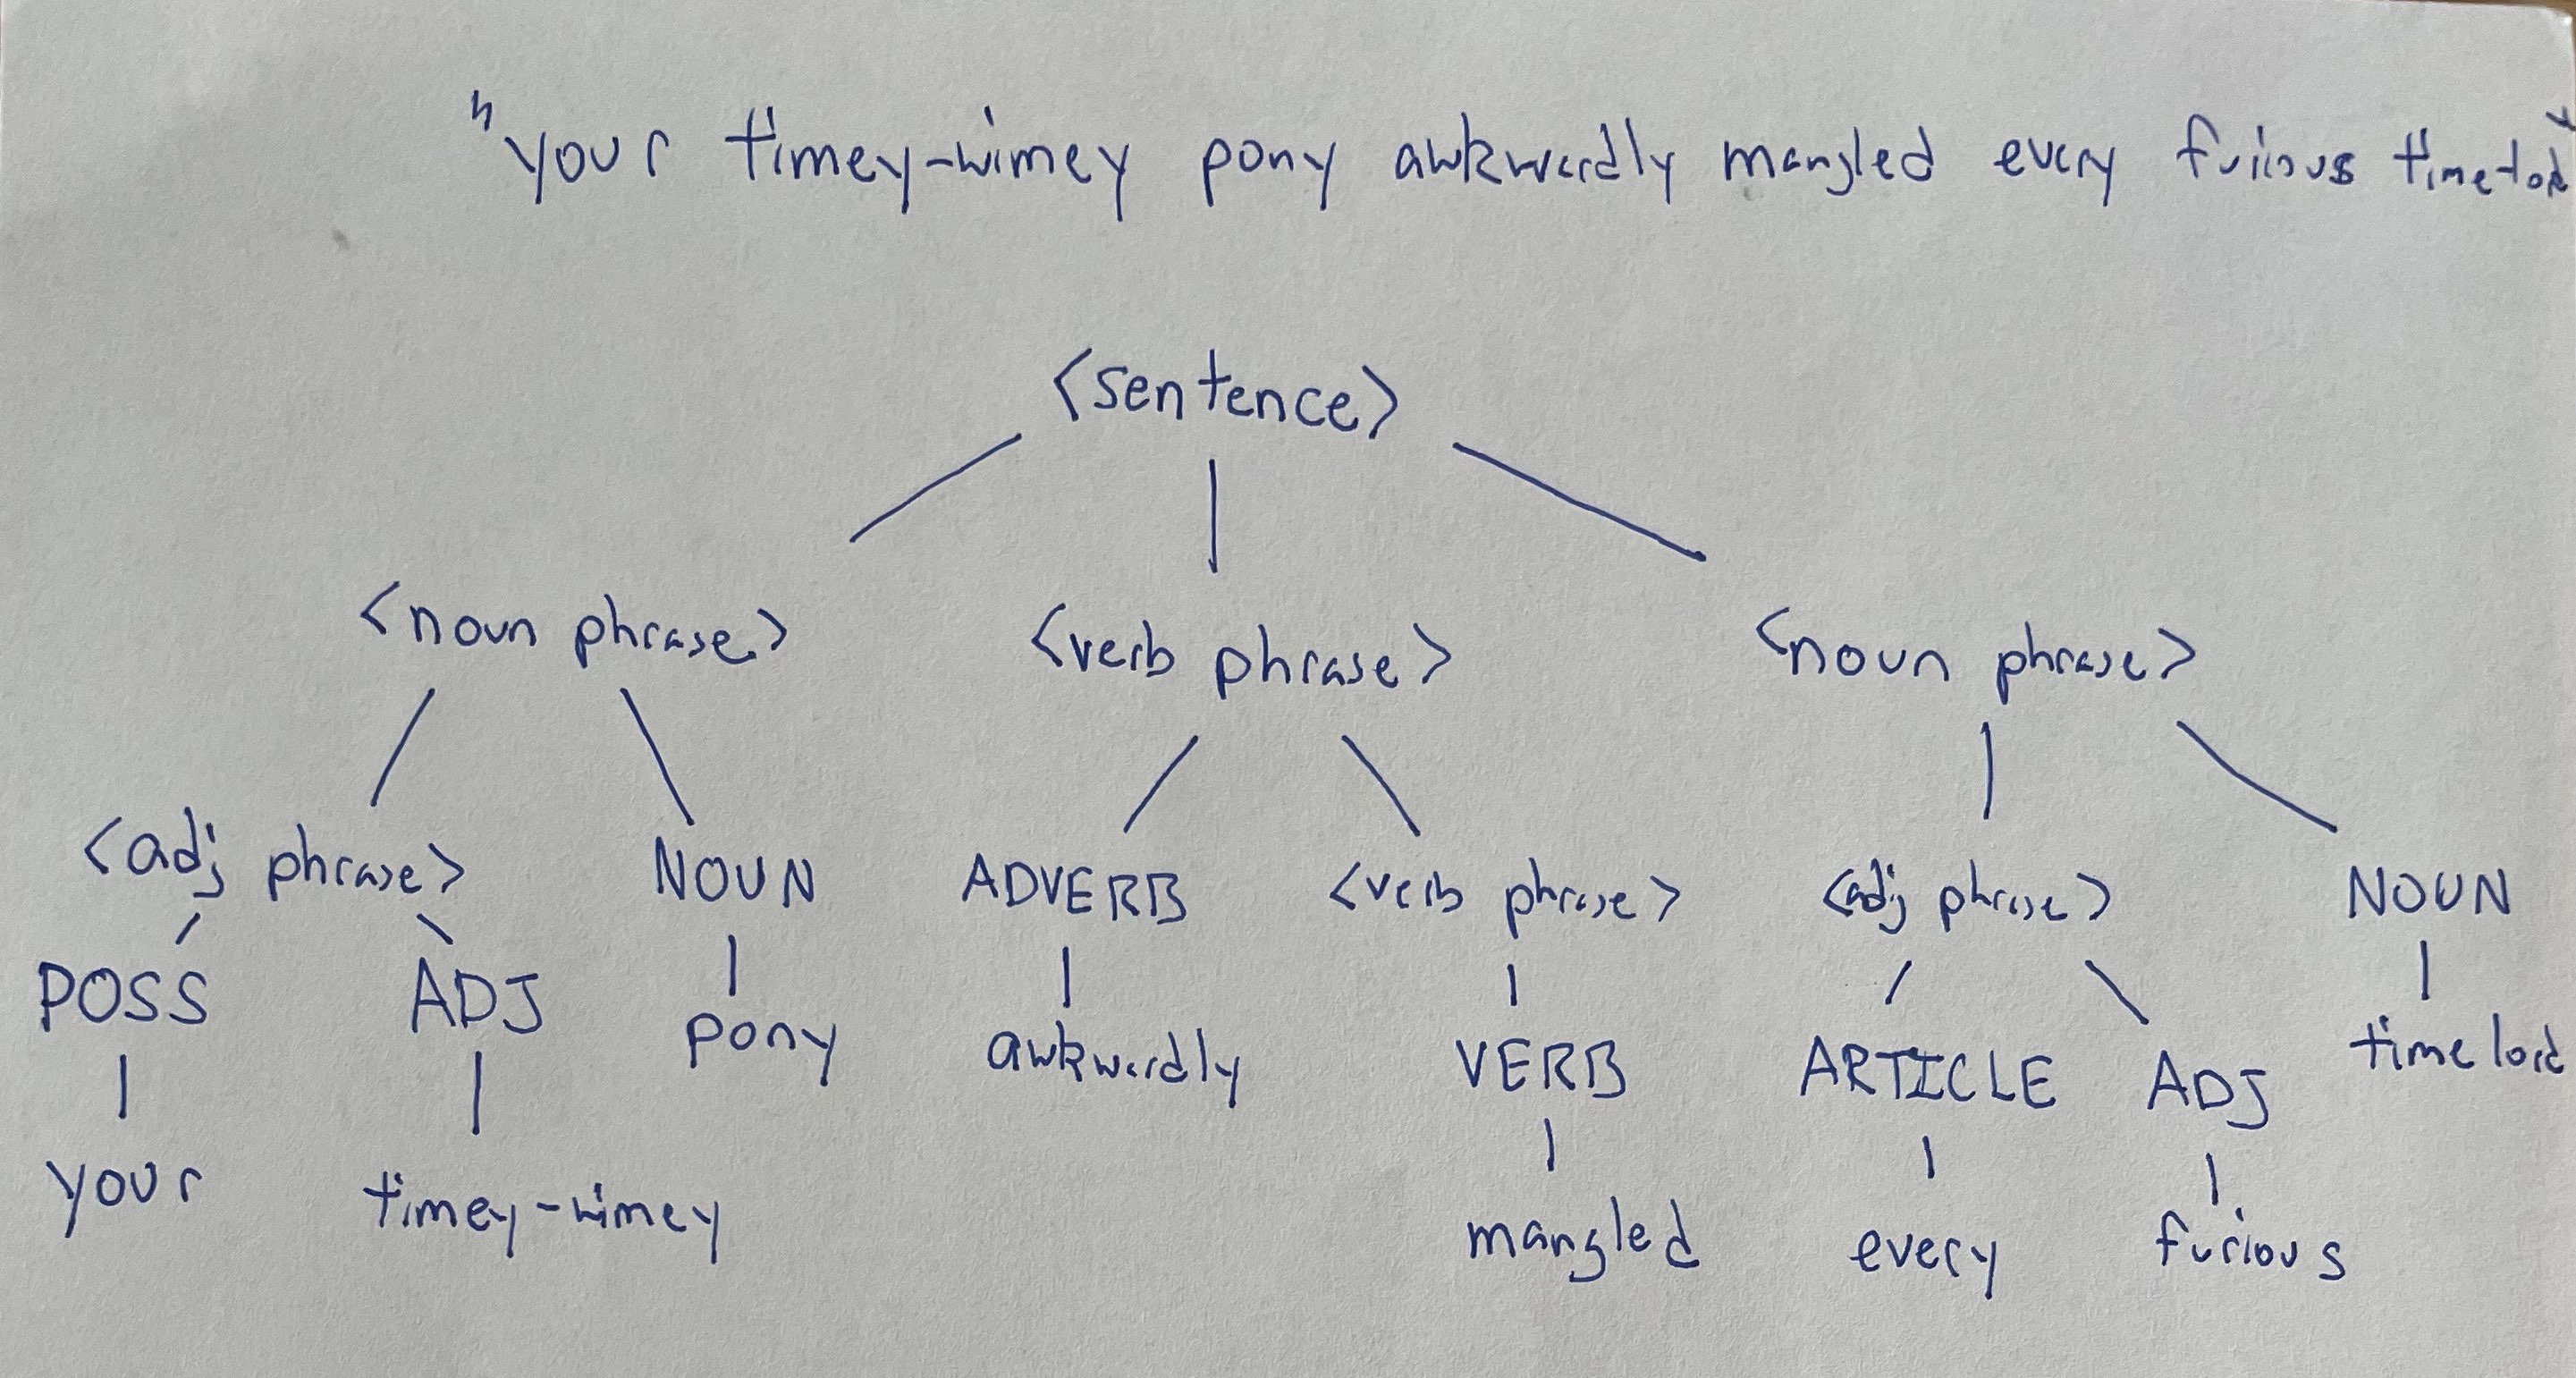 "your timey-wimey pony awkwardly mangled every furious time-lord"
<sentence>
<noun phrase> <verb phrase> <noun phrase>
<adj phrase> NOUN ADVERB <verb phrase> <adj phrase> NOUN
POSS ADJ pony awkwardly VERB ARTICLE ADJ time lord
your timey-wimey mangled every furious